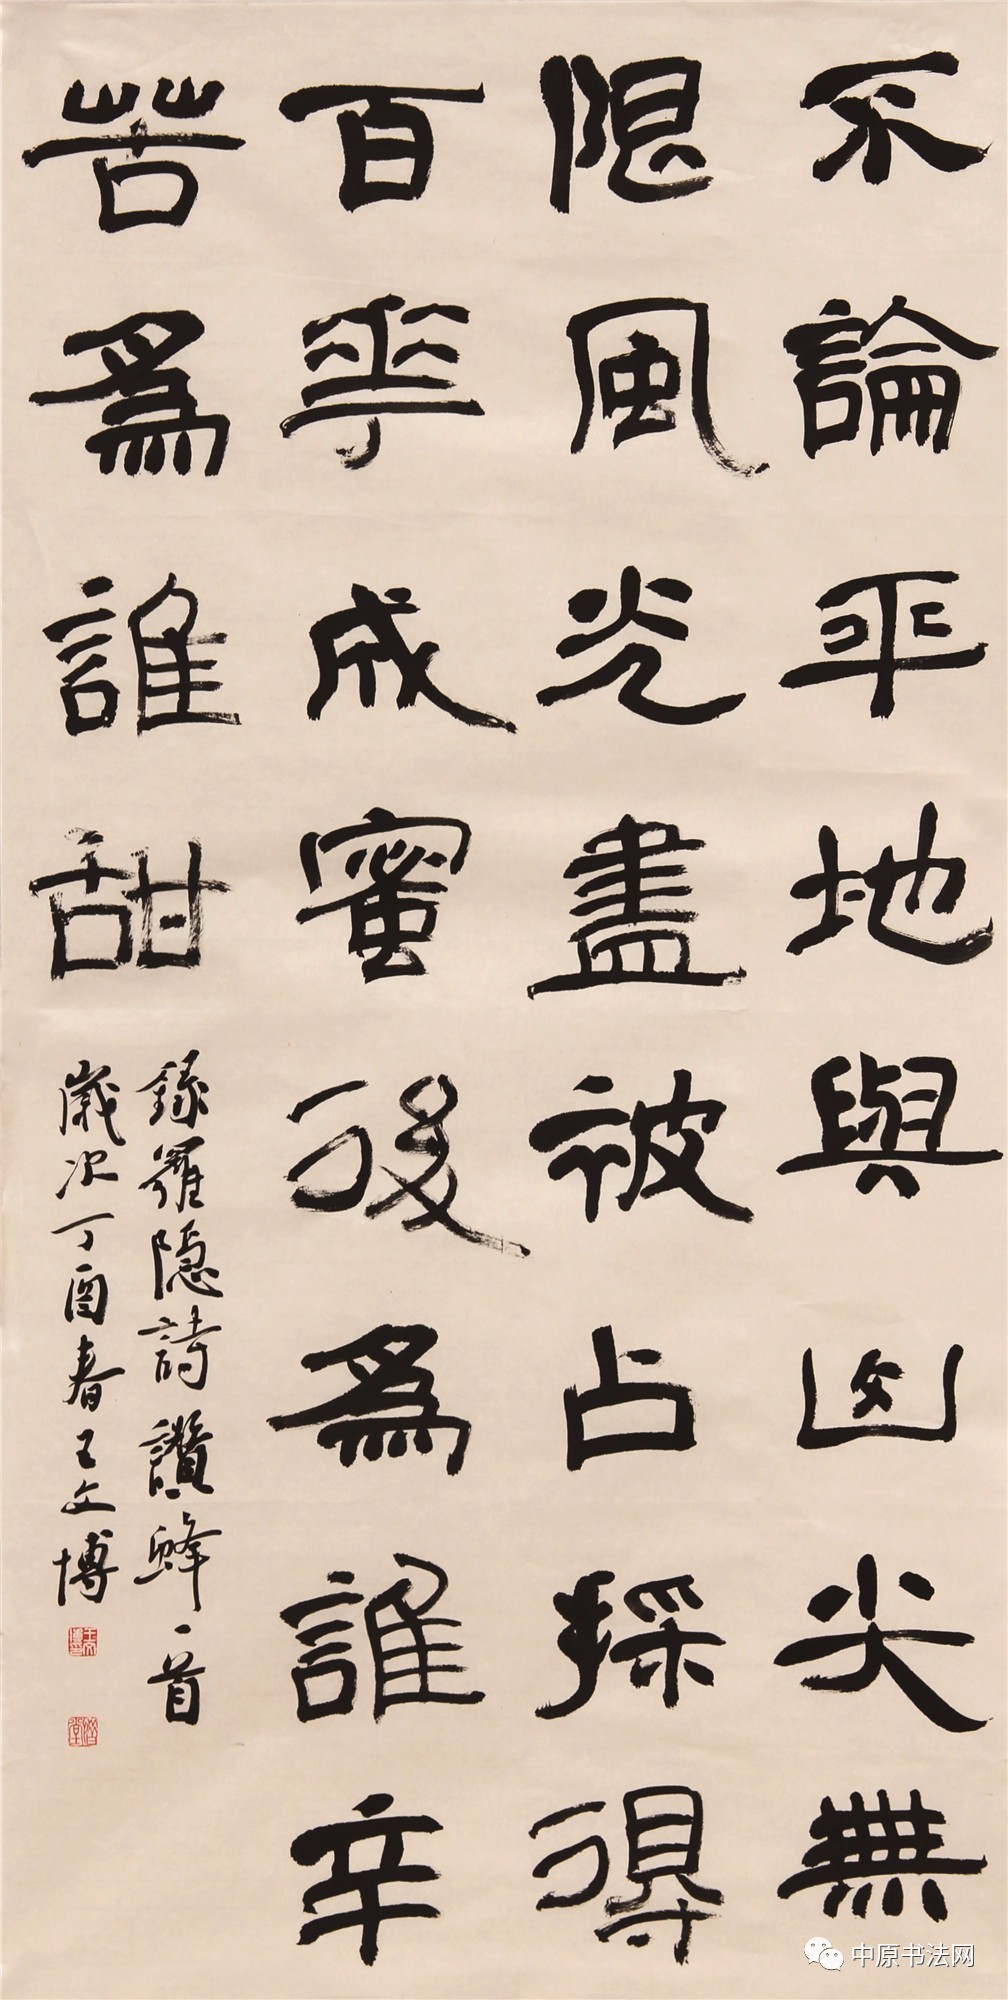 不論平地與山尖無
限風光盡被占採得
百花成蜜後爲誰辛
苦爲誰甜
錄羅隐詩讚蜂一首
歲次丁酉春王文博
中原书法网